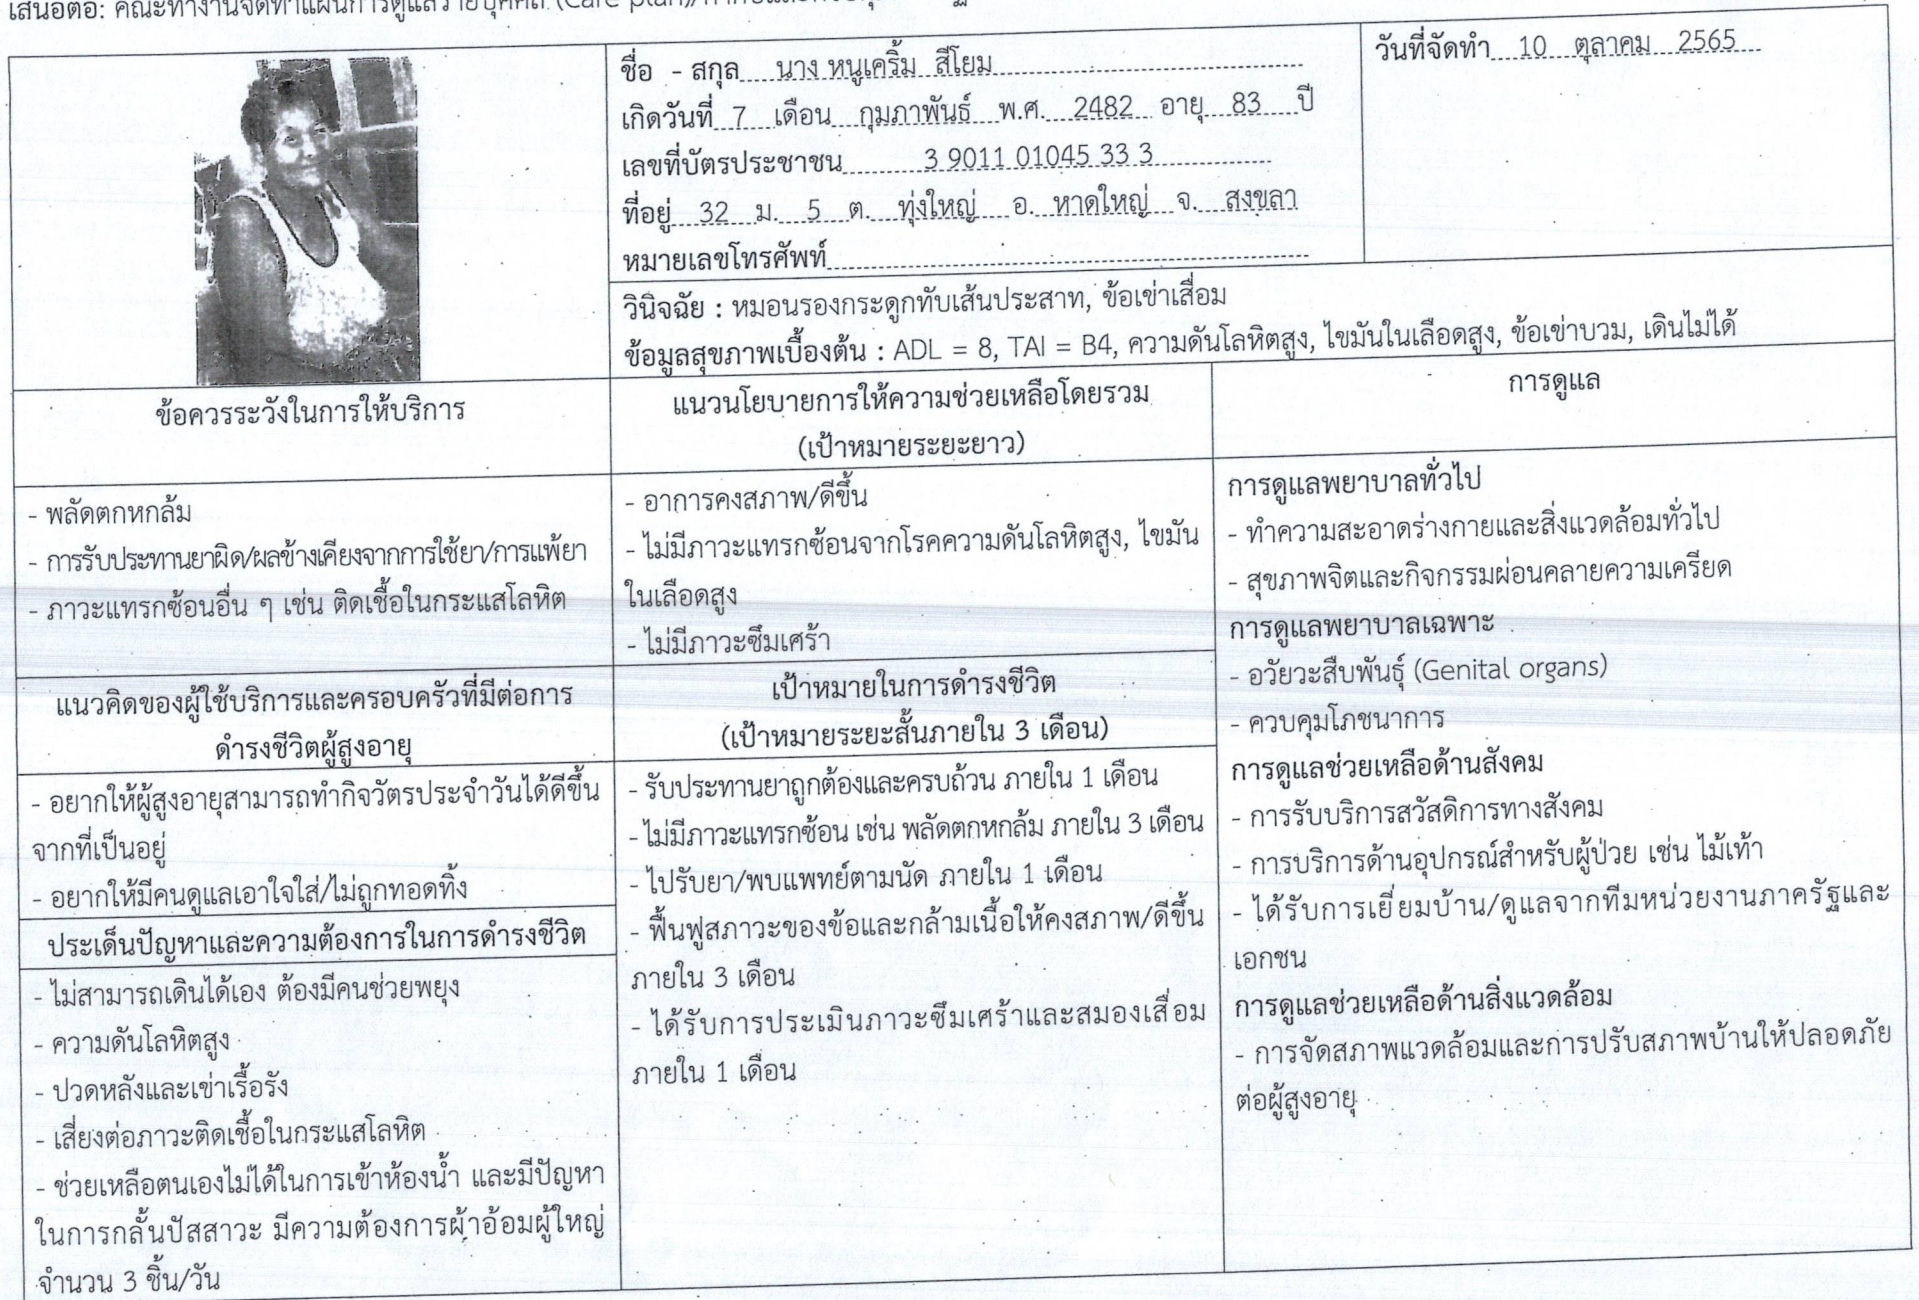 เสนอต่อ: คณะทำงานจัดทำแผนการดูแลรายบุคคล (Care plan)
ชื่อ - สกุล นาง หนูเคริ้ม สีโยม
วันที่จัดทำ 10 ตุลาคม 2565
เกิดวันที่ 7 เดือน กุมภาพันธ์ พ.ศ. 2482 อายุ 83 ปี
เลขที่บัตรประชาชน 3 9011 01045 33 3
ที่อยู่ 32 ม. 5 ต. ทุ่งใหญ่ อ. หาดใหญ่ จ. สงขลา
หมายเลขโทรศัพท์
วินิจฉัย : หมอนรองกระดูกทับเส้นประสาท, ข้อเข่าเสื่อม
ข้อมูลสุขภาพเบื้องต้น : ADL = 8, TAI = B4, ความดันโลหิตสูง, ไขมันในเลือดสูง, ข้อเข่าบวม, เดินไม่ได้
ข้อควรระวังในการให้บริการ
- พลัดตกหกล้ม
- การรับประทานยาผิด/ผลข้างเคียงจากการใช้ยา/การแพ้ยา
- ภาวะแทรกซ้อนอื่น ๆ เช่น ติดเชื้อในกระแสโลหิต
แนวคิดของผู้ใช้บริการและครอบครัวที่มีต่อการ
ดำรงชีวิตผู้สูงอายุ
- อยากให้ผู้สูงอายุสามารถทำกิจวัตรประจำวันได้ดีขึ้น
จากที่เป็นอยู่
- อยากให้มีคนดูแลเอาใจใส่/ไม่ถูกทอดทิ้ง
ประเด็นปัญหาและความต้องการในการดำรงชีวิต
- ไม่สามารถเดินได้เอง ต้องมีคนช่วยพยุง
- ความดันโลหิตสูง
- ปวดหลังและเข่าเรื้อรัง
- เสี่ยงต่อภาวะติดเชื้อในกระแสโลหิต
- ช่วยเหลือตนเองไม่ได้ในการเข้าห้องน้ำ และมีปัญหา
ในการกลั้นปัสสาวะ มีความต้องการผ้าอ้อมผู้ใหญ่
จำนวน 3 ชิ้น/วัน
แนวนโยบายการให้ความช่วยเหลือโดยรวม
(เป้าหมายระยะยาว)
- อาการคงสภาพ/ดีขึ้น
- ไม่มีภาวะแทรกซ้อนจากโรคความดันโลหิตสูง, ไขมัน
ในเลือดสูง
- ไม่มีภาวะซึมเศร้า
เป้าหมายในการดำรงชีวิต
(เป้าหมายระยะสั้นภายใน 3 เดือน)
- รับประทานยาถูกต้องและครบถ้วน ภายใน 1 เดือน
- ไม่มีภาวะแทรกซ้อน เช่น พลัดตกหกล้ม ภายใน 3 เดือน
- ไปรับยา/พบแพทย์ตามนัด ภายใน 1 เดือน
- ฟื้นฟูสภาวะของข้อและกล้ามเนื้อให้คงสภาพ/ดีขึ้น
ภายใน 3 เดือน
- ได้รับการประเมินภาวะซึมเศร้าและสมองเสื่อม
ภายใน 1 เดือน
การดูแล
การดูแลพยาบาลทั่วไป
- ทำความสะอาดร่างกายและสิ่งแวดล้อมทั่วไป
- สุขภาพจิตและกิจกรรมผ่อนคลายความเครียด
การดูแลพยาบาลเฉพาะ
- อวัยวะสืบพันธุ์ (Genital organs)
- ควบคุมโภชนาการ
การดูแลช่วยเหลือด้านสังคม
- การรับบริการสวัสดิการทางสังคม
- การบริการด้านอุปกรณ์สำหรับผู้ป่วย เช่น ไม้เท้า
- ได้รับการเยี่ยมบ้าน/ดูแลจากทีมหน่วยงานภาครัฐและ
เอกชน
การดูแลช่วยเหลือด้านสิ่งแวดล้อม
- การจัดสภาพแวดล้อมและการปรับสภาพบ้านให้ปลอดภัย
ต่อผู้สูงอายุ